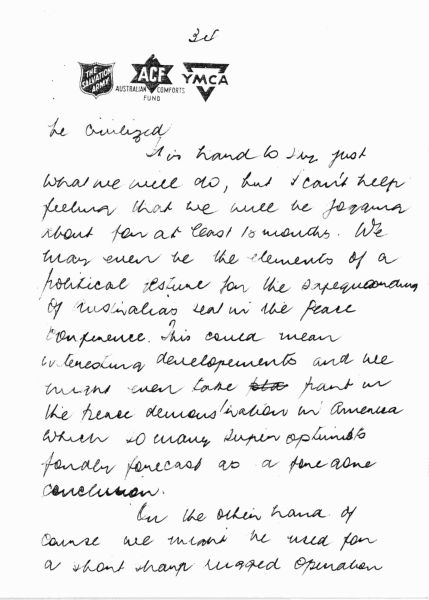 3rd
THE SALVATION ARMY
ACF
AUSTRALIAN COMFORTS FUND
YMCA
be civilized
It is hard to say just
what we will do, but I can't help
feeling that we will be
about for at least 18 months. We
may even be the elements of a
political gesture for the safeguarding
of Australias seat in the Peace
Conference. This could mean
interesting developements and we
might even take part in
the peace demonstration in America
which so many super optimists
fondly forecast as a foregone
conclusion.
On the other hand of
course we might be used for
a short sharp rugged operation